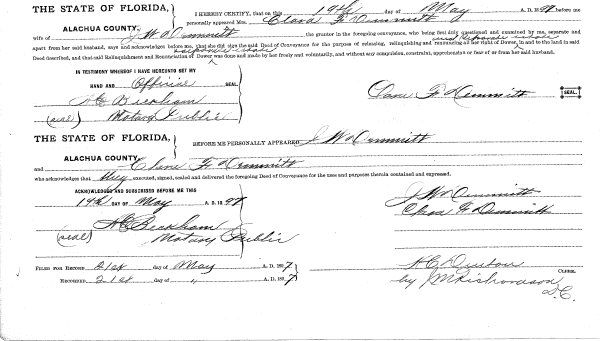 THE STATE OF FLORIDA,
ALACHUA COUNTY.
I HEREBY CERTIFY, that on this 19th day of May A. D. 1897 before me
personally appeared Mrs. Clara F.
wife of J W the grantor in the foregoing conveyance, who being first duly questioned and examined by me, separate and
apart from her said husband, says and acknowledges before me, that she did sign the said Deed of Conveyance for the purpose of releasing, relinquishing and renouncing all her right of Dower in and to the land in said
Deed described, and that said Relinquishment and Renunciation of Dower was done and made by her freely and voluntarily, and without any compulsion, constraint, apprehension or fear of or from her said husband.
IN TESTIMONY WHEREOF I HAVE HEREUNTO SET MY
HAND AND Official SEAL.
H C Beckham
(seal) Notary Public
SEAL
THE STATE OF FLORIDA,
ALACHUA COUNTY.
BEFORE ME PERSONALLY APPEARED J W
and F.
who acknowledges that they executed, signed, sealed and delivered the foregoing Deed of Conveyance for the uses and purposes therein contained and expressed.
ACKNOWLEDGED AND SUBSCRIBED BEFORE ME THIS
19th DAY OF May A. D. 1897
H C Beckham
(seal) Notary Public
J W
F
FILED FOR RECORD 21st day of May A. D. 1897
RECORDED 21st day of " A. D. 1897
H C CLERK.
by Richardson
D. C.